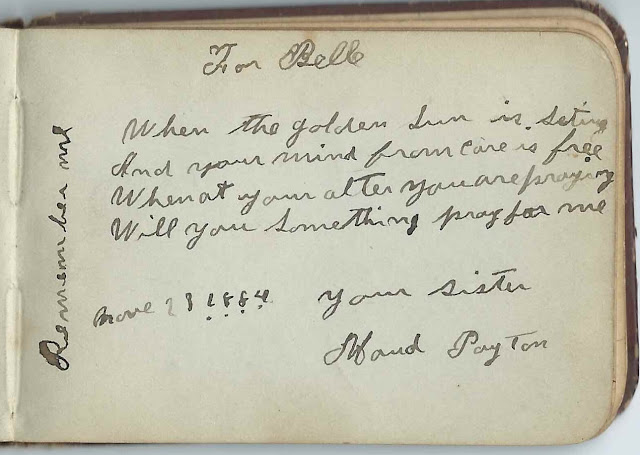 For Belle
When the golden Sun is seting
And your mind from care is free
When at your alter you are praying
Will you Something pray for me
your sister
Nove 1884
Maud Payton
Remember me